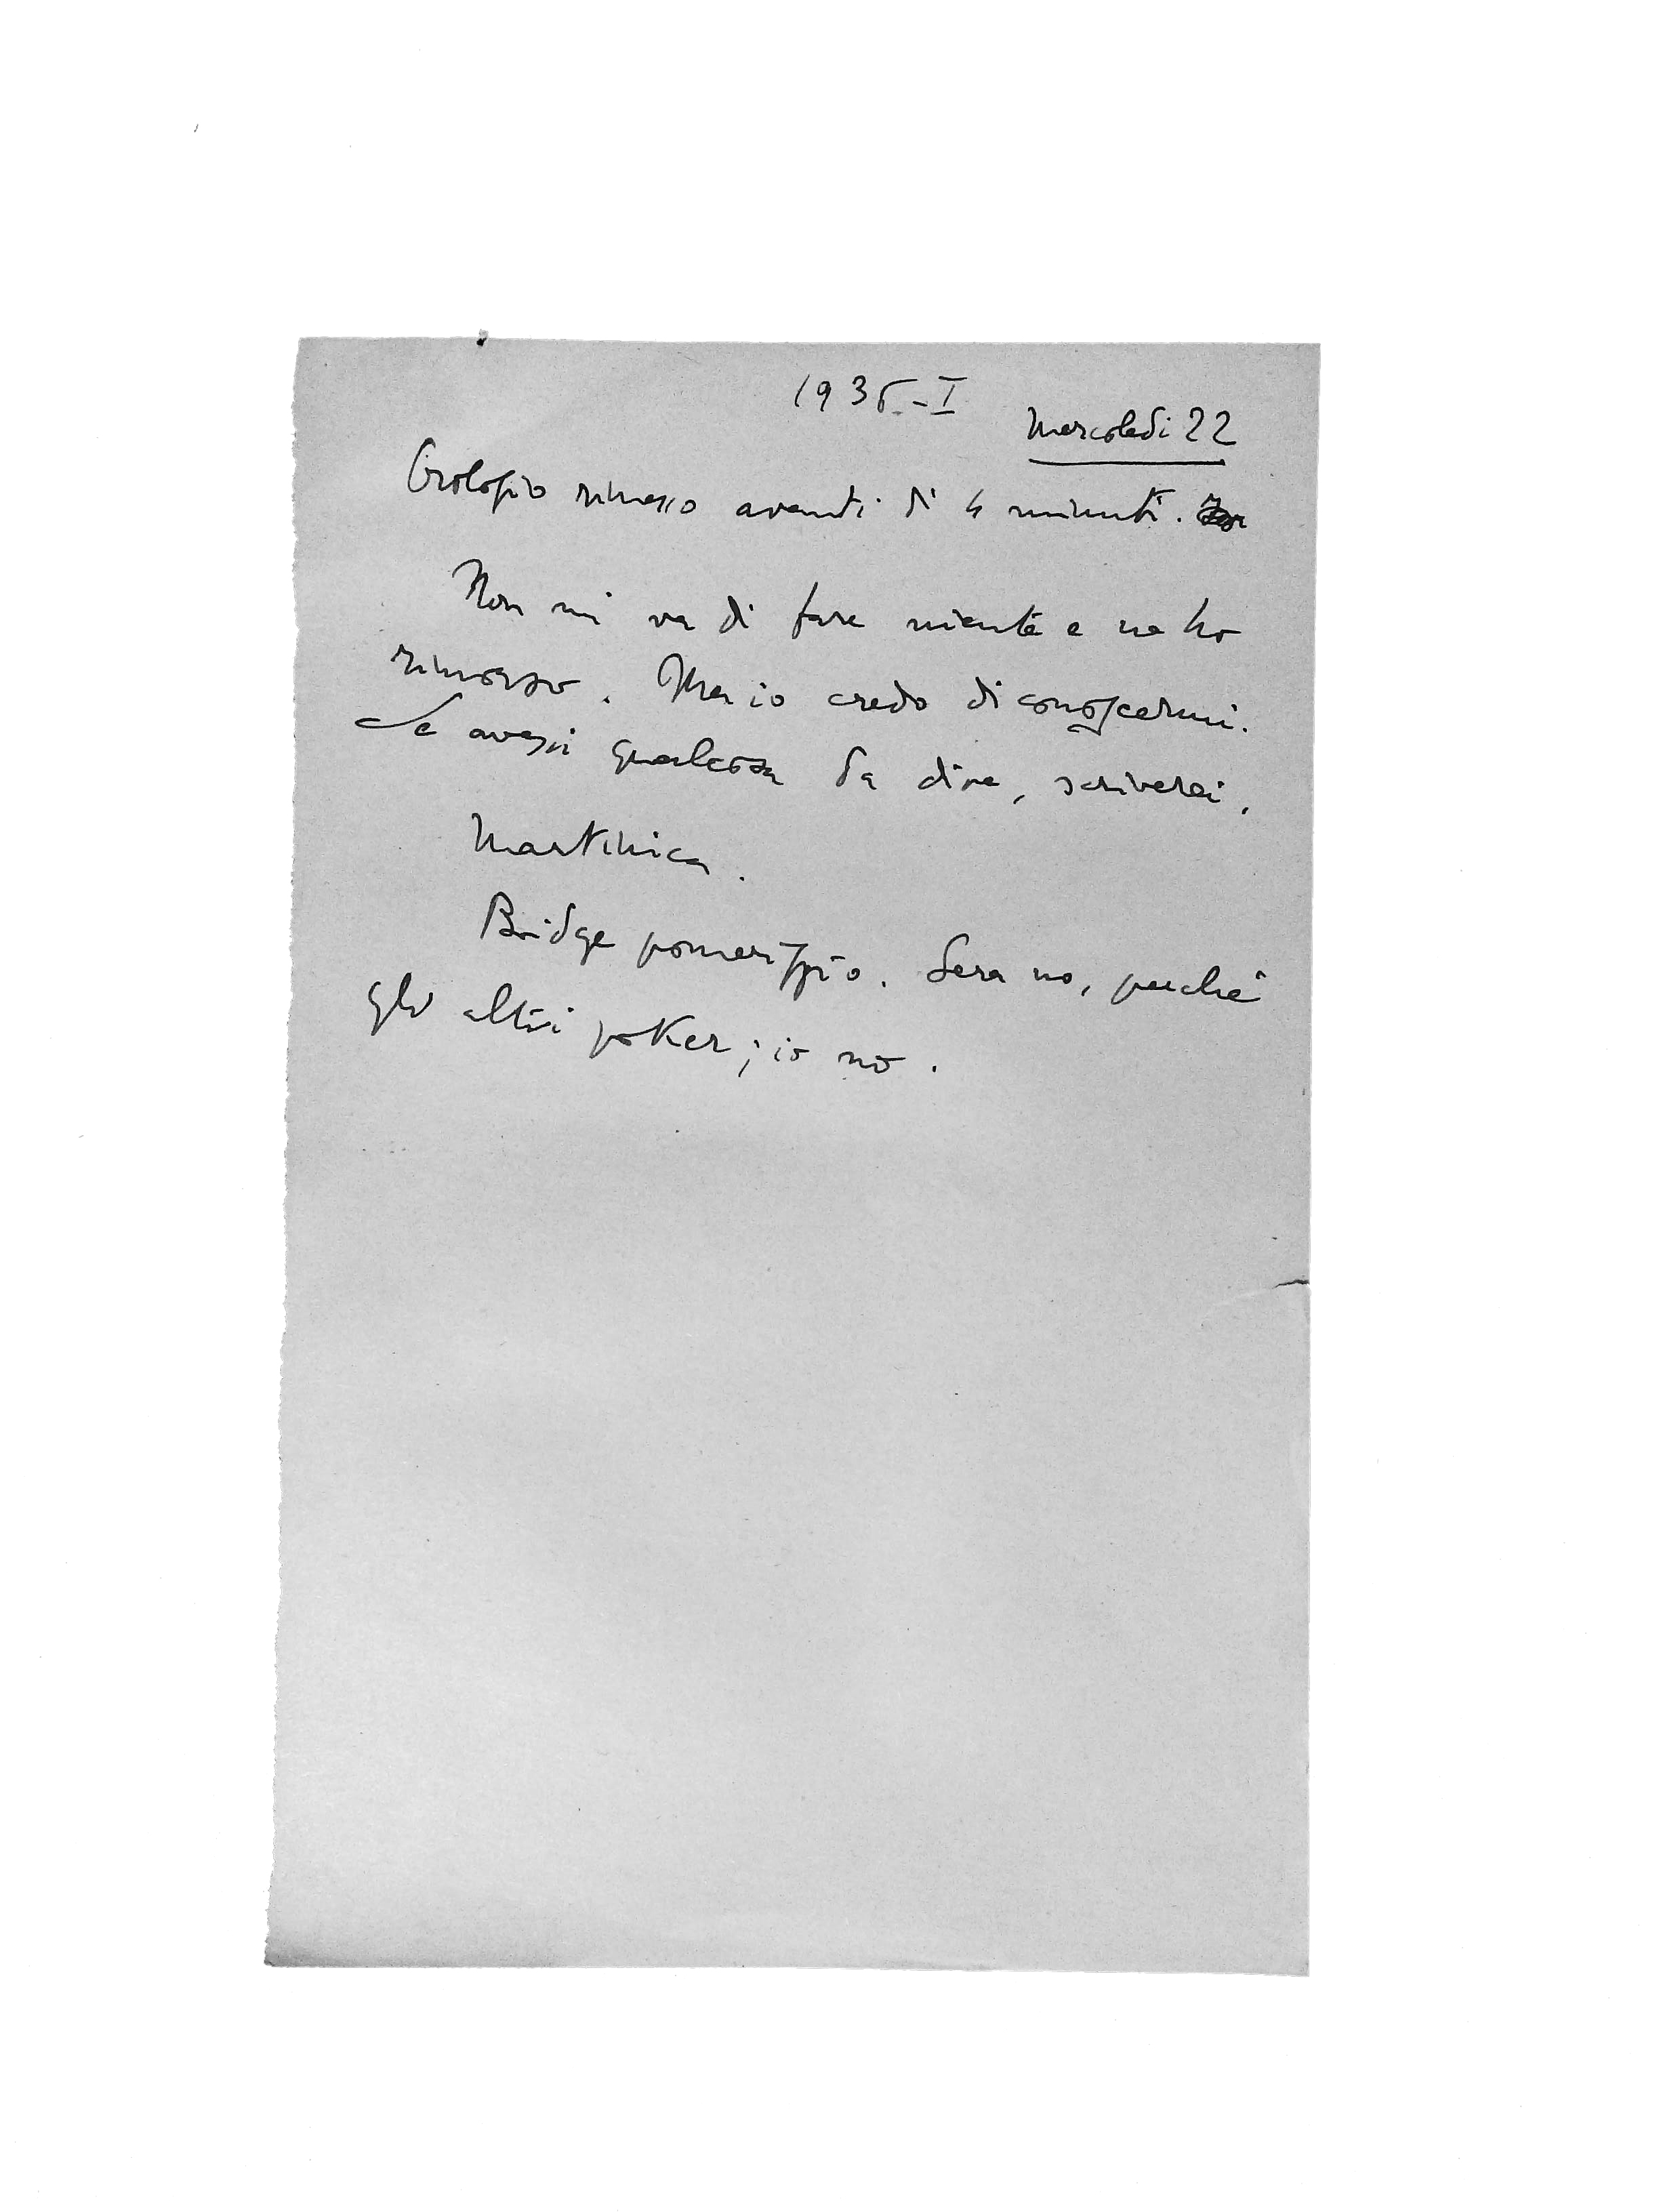 1936-I
Mercoledì 22
Orologio rimesso avanti di 4 minuti.
Non mi va di fare niente e ne ho
rimorso. Ma io credo di conoscermi.
Se avessi qualcosa da dire, scriverei.
Martinica.
Bridge pomeriggio. Sera no, perché
gli altri poker; io no.